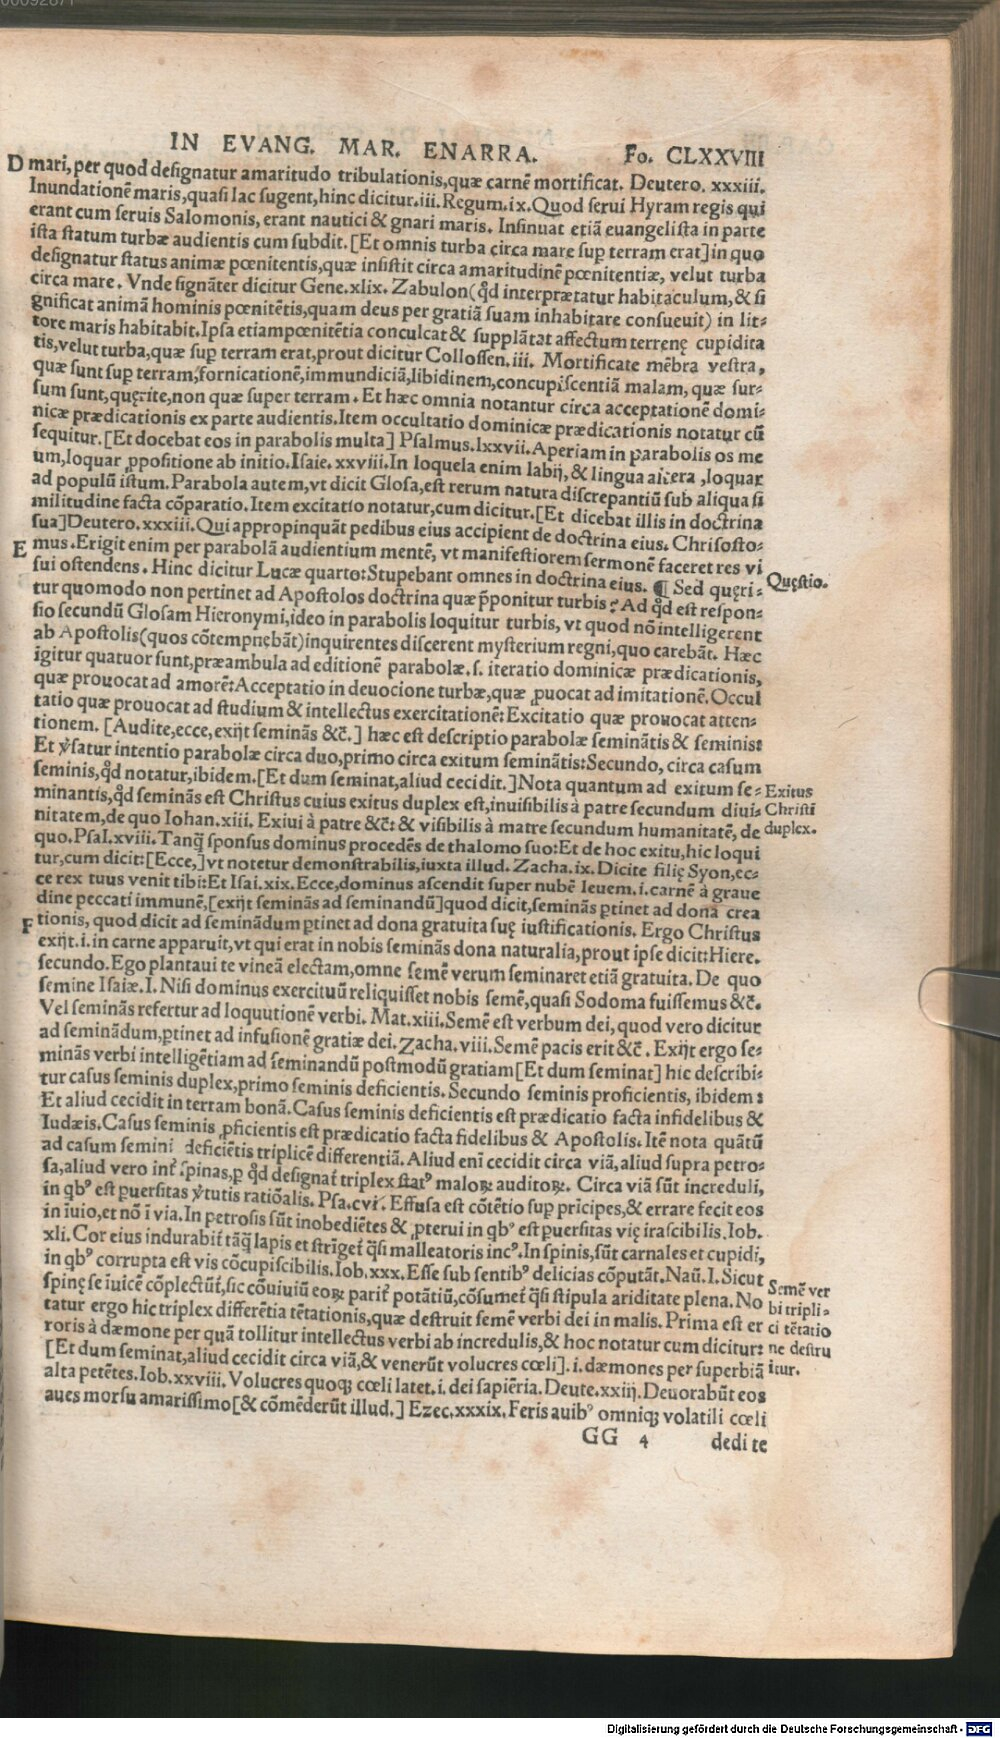 IN EVANG. MAR. ENARRA. Fo. CLXXVIII
D mari, per quod designatur amaritudo tribulationis, quæ carnē mortificat. Deutero. xxxiii.
Inundationē maris, quasi lac sugent, hinc dicitur. iii. Regum. ix. Quod serui Hyram regis qui
erant cum seruis Salomonis, erant nautici & gnari maris. Insinuat etiā euangelista in parte
ista statum turbæ audientis cum subdit. [Et omnis turba circa mare sup terram erat] in quo
designatur status animæ pœnitentis, quæ insistit circa amaritudinē pœnitentiæ, velut turba
circa mare. Vnde signāter dicitur Gene. xlix. Zabulon (qd̄ interprætatur habitaculum, & si
gnificat animā hominis pœnitētis, quam deus per gratiā suam inhabitare consueuit) in lit-
tore maris habitabit. Ipsa etiampœnitētia conculcat & supplātat affectum terrenę cupidita
tis, velut turba, quæ sup terram erat, prout dicitur Collossen. iii. Mortificate mēbra vestra,
quæ sunt sup terram, fornicationē, immundiciā, libidinem, concupiscentiā malam, quæ sur-
sum sunt, quęrite, non quæ super terram. Et hæc omnia notantur circa acceptationē domi-
nicæ prædicationis ex parte audientis. Item occultatio dominicæ prædicationis notatur cū
sequitur. [Et docebat eos in parabolis multa] Psalmus. lxxvii. Aperiam in parabolis os me
um, loquar ꝓpositione ab initio. Isaie. xxviii. In loquela enim labij, & lingua altera, loquar
ad populū istum. Parabola autem, vt dicit Glosa, est rerum natura discrepantiū sub aliqua si
militudine facta cōparatio. Item excitatio notatur, cum dicitur. [Et dicebat illis in doctrina
sua] Deutero. xxxiii. Qui appropinquāt pedibus eius accipient de doctrina eius. Chrisosto-
E mus. Erigit enim per parabolā audientium mentē, vt manifestiorem sermonē faceret res vi
sui ostendens. Hinc dicitur Lucæ quarto: Stupebant omnes in doctrina eius. ¶ Sed quęri- Quęstio.
tur quomodo non pertinet ad Apostolos doctrina quæ p̄ponitur turbis? Ad qd̄ est respon-
sio secundū Glosam Hieronymi, ideo in parabolis loquitur turbis, vt quod nō intelligerent
ab Apostolis (quos cōtempnębāt) inquirentes discerent mysterium regni, quo carebāt. Hæc
igitur quatuor sunt, præambula ad editionē parabolæ. s. iteratio dominicæ prædicationis,
quæ prouocat ad amorē: Acceptatio in deuocione turbæ, quæ ꝓuocat ad imitationē. Occul
tatio quæ prouocat ad studium & intellectus exercitationē: Excitatio quæ prouocat atten-
tionem. [Audite, ecce, exijt seminās &c̄.] hæc est descriptio parabolæ seminātis & seminis:
Et v̓satur intentio parabolæ circa duo, primo circa exitum seminātis: Secundo, circa casum
seminis, qd̄ notatur, ibidem. [Et dum seminat, aliud cecidit.] Nota quantum ad exitum se- Exitus
minantis, qd̄ seminās est Christus cuius exitus duplex est, inuisibilis à patre secundum diui- Christi
nitatem, de quo Iohan. xiii. Exiui à patre &c̄: & visibilis à matre secundum humanitatē, de duplex.
quo. Psal. xviii. Tanq̄ sponsus dominus procedēs de thalomo suo: Et de hoc exitu, hic loqui
tur, cum dicit: [Ecce,] vt notetur demonstrabilis, iuxta illud. Zacha. ix. Dicite filię Syon, ec-
ce rex tuus venit tibi: Et Isai. xix. Ecce, dominus ascendit super nubē leuem. i. carnē à graue
dine peccati immunē, [exijt seminās ad seminandū] quod dicit, seminās ptinet ad dona crea
F tionis, quod dicit ad seminādum ptinet ad dona gratuita suę iustificationis. Ergo Christus
exijt. i. in carne apparuit, vt qui erat in nobis seminās dona naturalia, prout ipse dicit: Hiere.
secundo. Ego plantaui te vineā electam, omne semē verum seminaret etiā gratuita. De quo
semine Isaiæ. I. Nisi dominus exercituū reliquisset nobis semē, quasi Sodoma fuissemus &c̄.
Vel seminās refertur ad loquutionē verbi. Mat. xiii. Semē est verbum dei, quod vero dicitur
ad seminādum, ptinet ad infusionē gratiæ dei. Zacha. viii. Semē pacis erit &c̄. Exijt ergo se-
minās verbi intelligētiam ad seminandū postmodū gratiam [Et dum seminat] hic describi-
tur casus seminis duplex, primo seminis deficientis. Secundo seminis proficientis, ibidem:
Et aliud cecidit in terram bonā. Casus seminis deficientis est prædicatio facta infidelibus &
Iudæis. Casus seminis ꝓficientis est prædicatio facta fidelibus & Apostolis. Itē nota quātū
ad casum semini deficiētis triplicē differentiā. Aliud enī cecidit circa viā, aliud supra petro-
sa, aliud vero int̓ spinas, p qd̄ designat̓ triplex stat⁹ maloꝝ auditoꝝ. Circa viā sūt increduli,
in qb⁹ est puersitas v̓tutis ratiōalis. Psa. cvi. Effusa est cōtētio sup pricipes, & errare fecit eos
in iuio, et nō ī via. In petrosis sūt inobediētes & ꝓterui in qb⁹ est puersitas vię irascibilis. Iob.
xli. Cor eius indurabit̓ tāq̄ lapis et strīget̓ q̄si malleatoris inc⁹. In spinis, sūt carnales et cupidi,
in qb⁹ corrupta est vis cōcupiscibilis. Iob. xxx. Esse sub sentib⁹ delicias cōputāt. Naū. I. Sicut Semē ver
spinę se iuicē cōplectūt̓, sic cōuiuiū eoꝝ parit̓ potātiū, cōsumet̓ q̄si stipula ariditate plena. No bi tripli-
tatur ergo hic triplex differētia tētationis, quæ destruit semē verbi dei in malis. Prima est er ci tētatio
roris à dæmone per quā tollitur intellectus verbi ab incredulis, & hoc notatur cum dicitur: ne destru
[Et dum seminat, aliud cecidit circa viā, & venerūt volucres cœli]. i. dæmones per superbiā itur.
alta petētes. Iob. xxviii. Volucres quoqꝫ cœli latet. i. dei sapiētia. Deute. xxiij. Deuorabūt eos
aues morsu amarissimo [& cōmēderūt illud.] Ezec. xxxix. Feris auib⁹ omniqꝫ volatili cœli
GG 4 dedi te
Digitalisierung gefördert durch die Deutsche Forschungsgemeinschaft - DFG